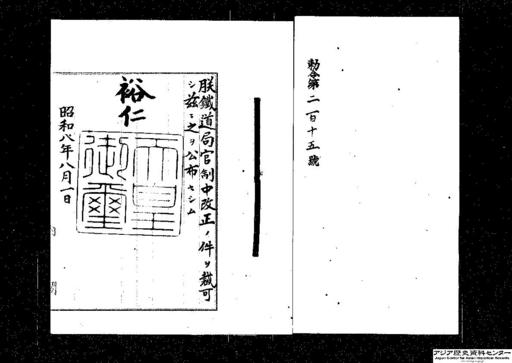 勅令第二百十五號
朕鐵道局官制中改正ノ件ヲ裁可
シ茲ニ之ヲ公布セシム
裕仁
天皇御璽
昭和八年八月一日
内
閣
アジア歴史資料センター
Japan Center for Asian Historical Records